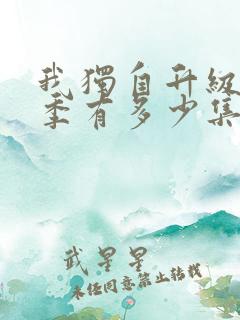 我獨自升級
季有多少集
武星星
未经同意禁止转载